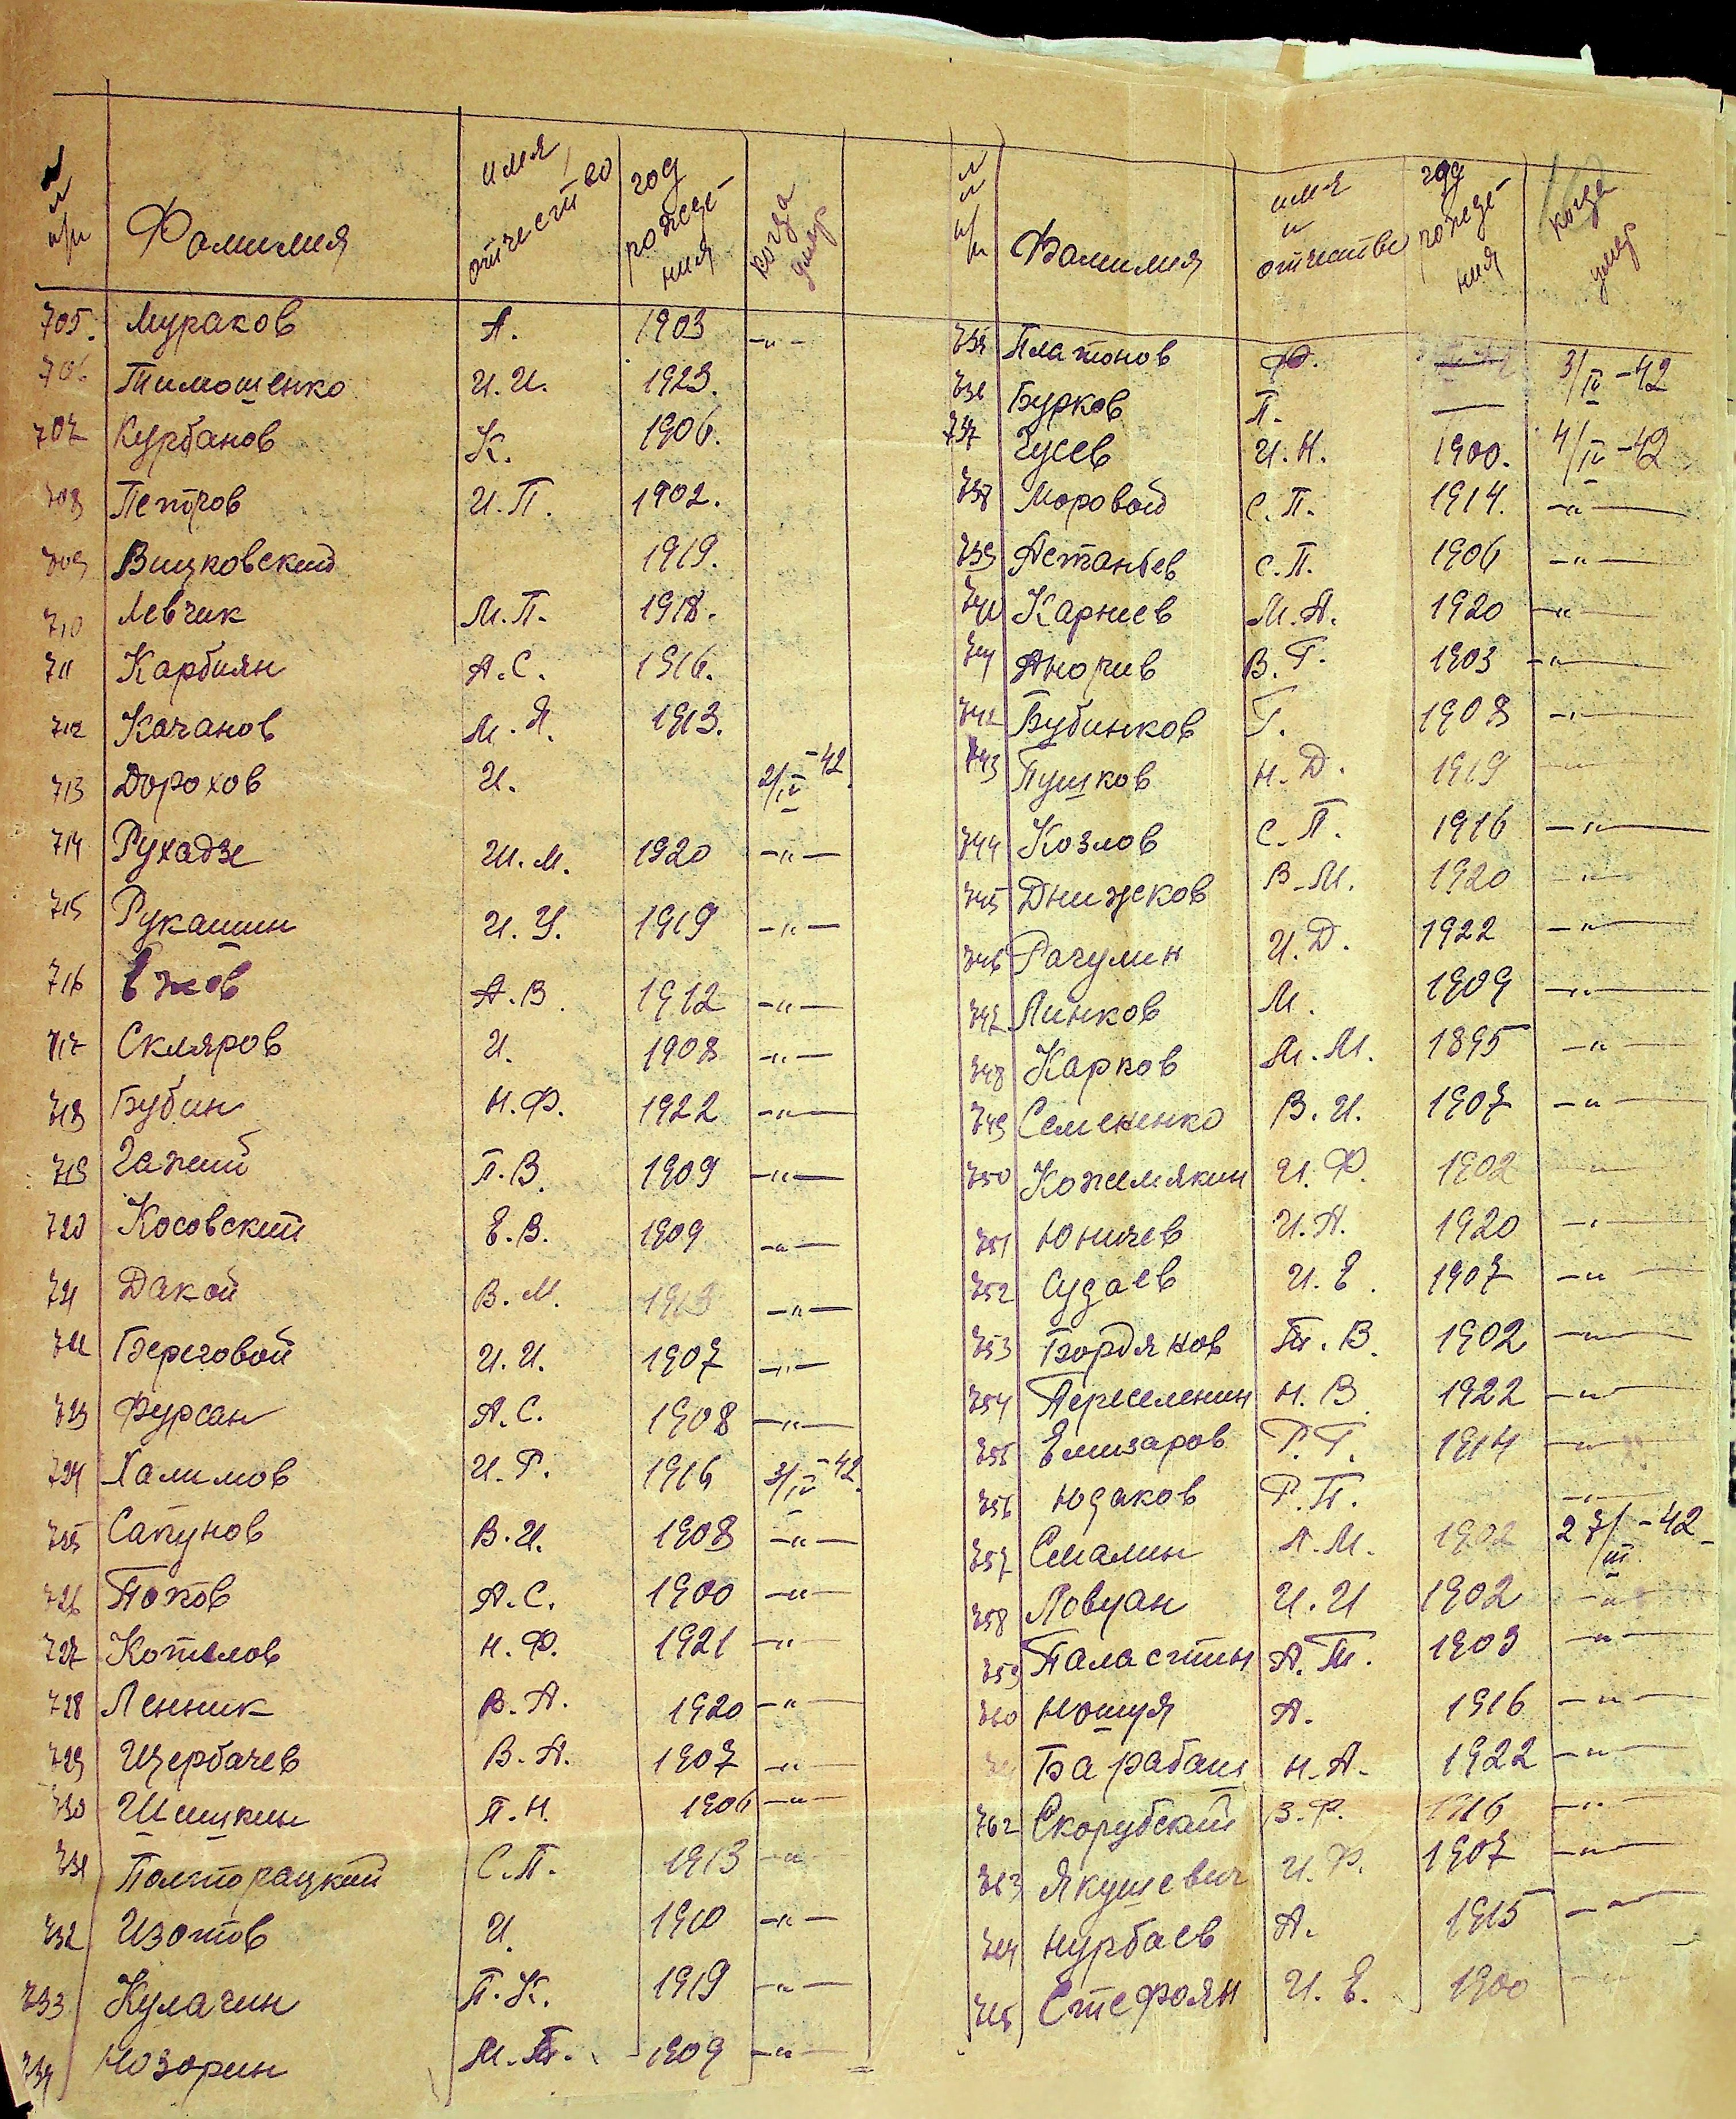 № п/п Фамилия имя, отчество год рождения когда умер
705. Мураков А. 1903 –"–
706 Тимошенко И.И. 1923.
707 Курбанов К. 1906.
708 Петров И.П. 1902.
709 Вицковский 1919.
710 Левчик М.П. 1918.
711 Карбиян А.С. 1916.
712 Качанов М.Я. 1913.
713 Дорохов И. 2/IV-42
714 Рухадзе Ш.М. 1920 –"–
715 Рукашин И.У. 1919 –"–
716 Ежов А.В. 1912 –"–
717 Скляров И. 1908 –"–
718 Бубин Н.Ф. 1922 –"–
719 Гапий П.В. 1909 –"–
720 Косовский Е.В. 1909 –"–
721 Дакой В.М. 1913 –"–
722 Береговой И.И. 1907 –"–
723 Фурсан А.С. 1908 –"–
724 Халимов И.Р. 1916 3/IV-42.
725 Сапунов В.И. 1908 –"–
726 Попов А.С. 1900 –"–
727 Котелов Н.Ф. 1921 –"–
728 Ленник В.А. 1920 –"–
729 Щербачев В.А. 1907 –"–
730 Шишкин П.Н. 1906 –"–
731 Полторацкий С.П. 1913 –"–
732 Изотов И. 1910 –"–
733 Кулагин П.К. 1919 –"–
734 Назорин М. 1909 –"–
№ п/п Фамилия имя и отчество год рождения когда умер
735 Платонов Ф. 3/IV-42
736 Бурков П. —
737 Гусев И.Н. 1900. 4/IV-42
738 Моровой С.П. 1914. –"–
739 Астаньев С.П. 1906 –"–
740 Карнев М.А. 1920 –"–
741 В.Г. 1903 –"–
742 Бубинков Г. 1908 –"–
743 Пушков Н.Д. 1919 –"–
744 Козлов С.П. 1916 –"–
745 Днищеков В.М. 1920 –"–
746 Рагулин И.Д. 1922 –"–
747 Линков М. 1909 –"–
748 Карков М.М. 1895 –"–
749 Семененко В.И. 1907 –"–
750 Кожемякин И.Ф. 1902 –"–
751 Юничев И.А. 1920 –"–
752 Судаев И.Е. 1907 –"–
753 Бордяков Т.В. 1902 –"–
754 Переселенин Н.В. 1922 –"–
755 Елизаров Р.Г. 1914 –"–
756 Юдаков Р.П. –"–
757 Смалин А.М. 1902 27/III-42
758 Ловуан И.И 1902 –"–
759 Паластин А.Т. 1903 –"–
760 Ношуя А. 1916 –"–
Барабаш Н.А. 1922 –"–
762 Скорубский З.Ф. 1916 –"–
763 Якушевич И.Ф. 1907 –"–
764 Нурбаев А. 1915 –"–
765 Стефоян И.Е. 1900 –"–